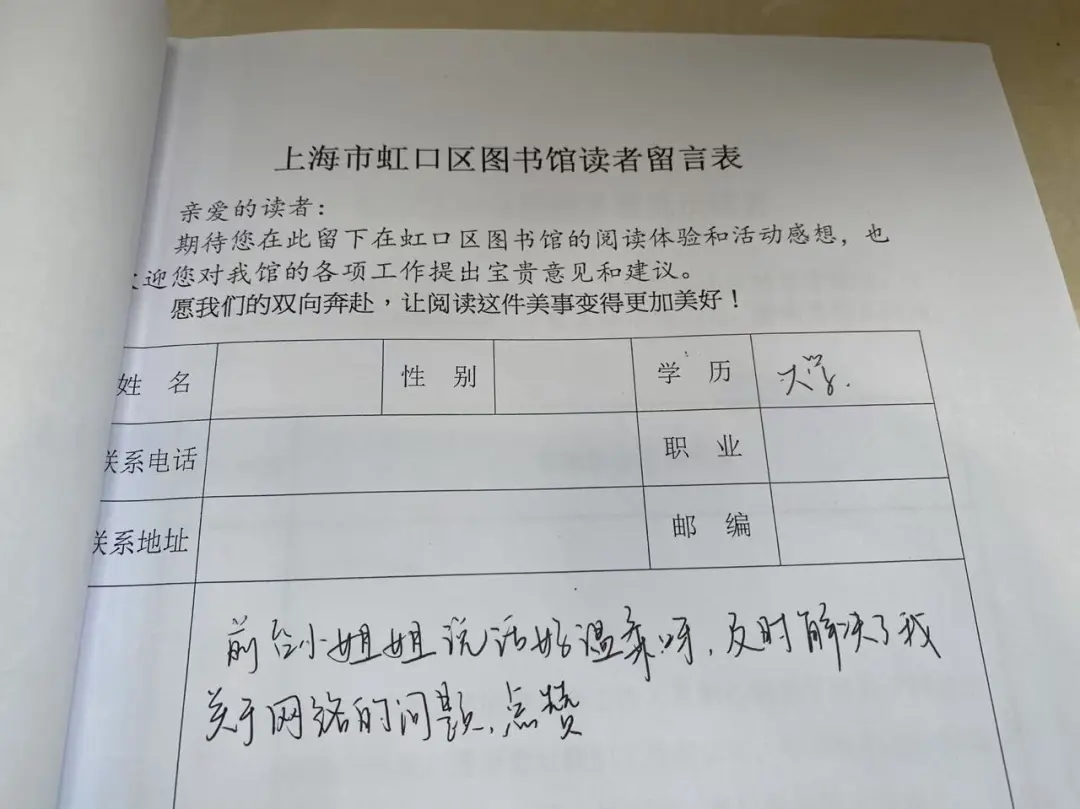 上海市虹口区图书馆读者留言表
亲爱的读者：
期待您在此留下在虹口区图书馆的阅读体验和活动感想，也
欢迎您对我馆的各项工作提出宝贵意见和建议。
愿我们的双向奔赴，让阅读这件美事变得更加美好！
姓 名 性 别 学 历 大学.
联系电话 职 业
联系地址 邮 编
前台小姐姐说话好温柔呀，及时解决了我
关于网络的问题，点赞